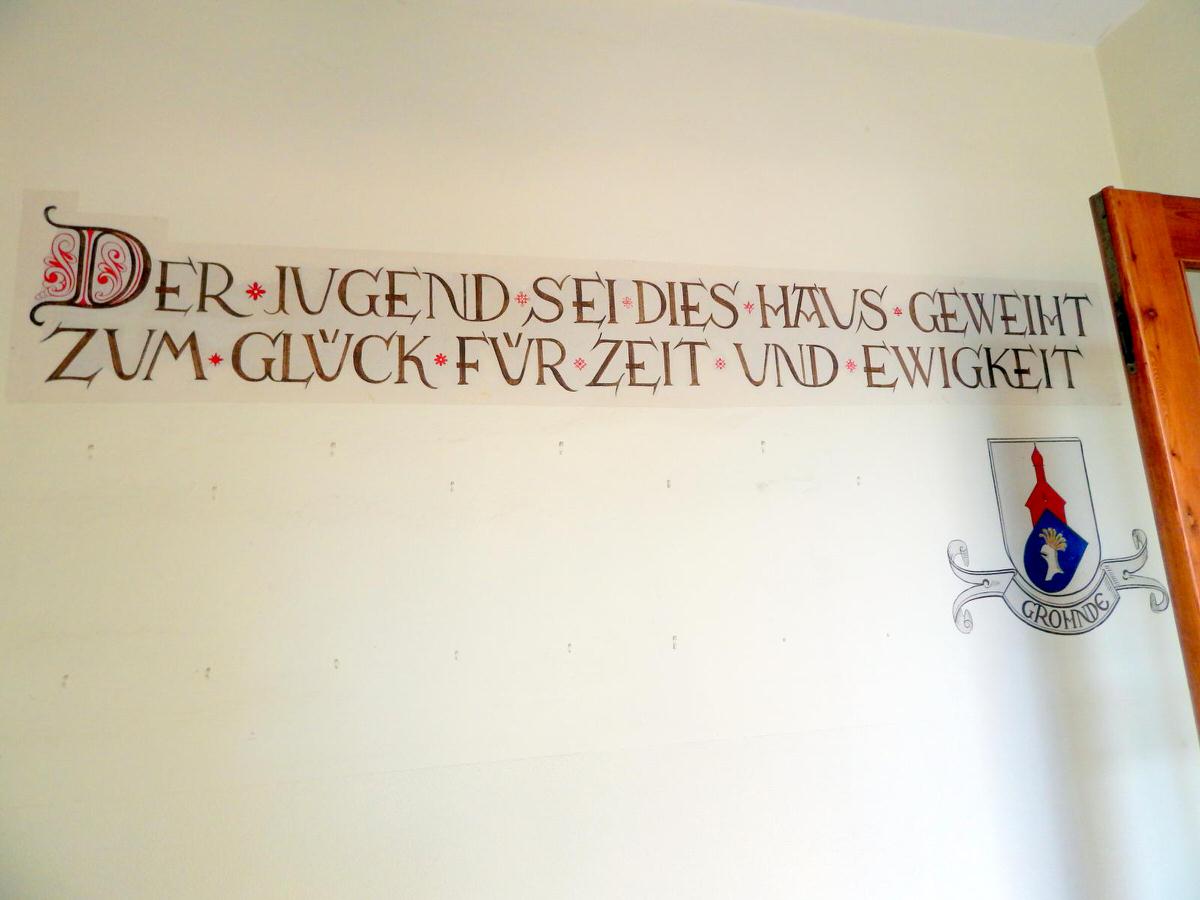 DER * JUGEND * SEI * DIES * HAUS * GEWEIHT
ZUM * GLÜCK * FÜR * ZEIT * UND * EWIGKEIT
GROHNDE